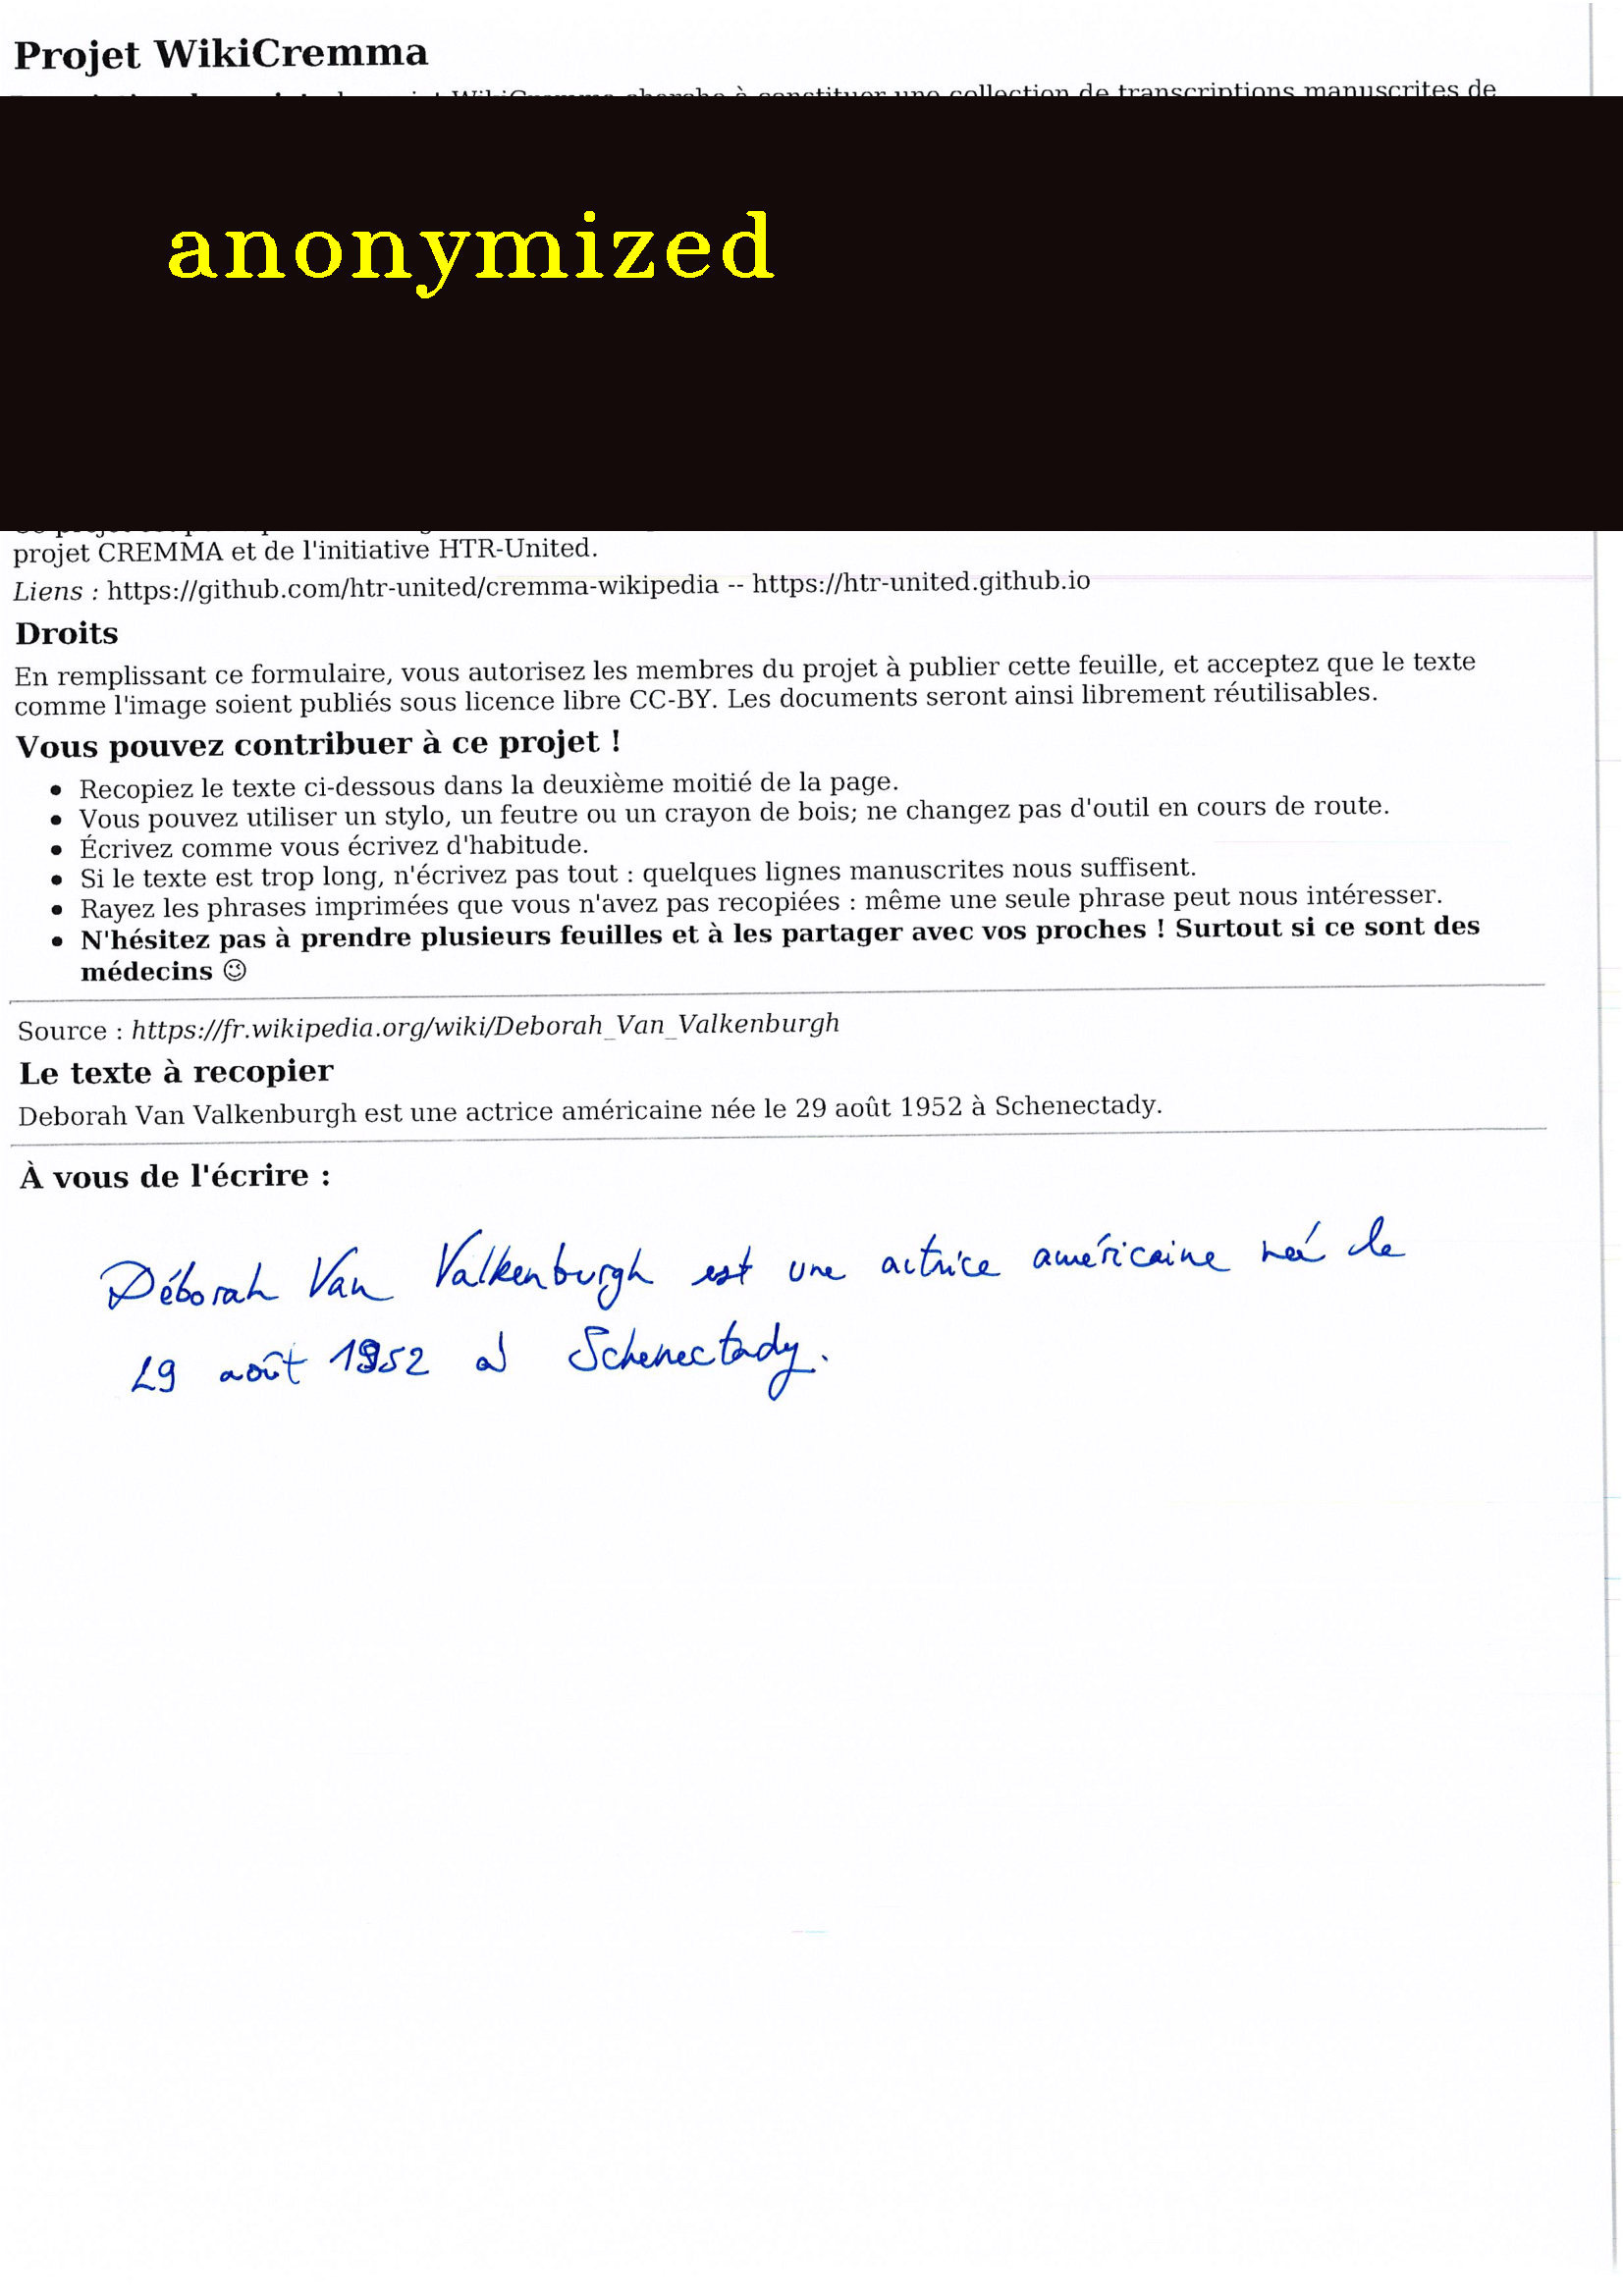 Projet WikiCremma
projet WikiCremma cherche à constituer une collection de transcriptions manuscrites de
anonymized
projet CREMMA et de l'initiative HTR-United.
Liens : https://github.com/htr-united/cremma-wikipedia -- https://htr-united.github.io
Droits
En remplissant ce formulaire, vous autorisez les membres du projet à publier cette feuille, et acceptez que le texte
comme l'image soient publiés sous licence libre CC-BY. Les documents seront ainsi librement réutilisables.
Vous pouvez contribuer à ce projet !
• Recopiez le texte ci-dessous dans la deuxième moitié de la page.
• Vous pouvez utiliser un stylo, un feutre ou un crayon de bois; ne changez pas d'outil en cours de route.
• Écrivez comme vous écrivez d'habitude.
• Si le texte est trop long, n'écrivez pas tout : quelques lignes manuscrites nous suffisent.
• Rayez les phrases imprimées que vous n'avez pas recopiées : même une seule phrase peut nous intéresser.
• N'hésitez pas à prendre plusieurs feuilles et à les partager avec vos proches ! Surtout si ce sont des
médecins 😉
Source : https://fr.wikipedia.org/wiki/Deborah_Van_Valkenburgh
Le texte à recopier
Deborah Van Valkenburgh est une actrice américaine née le 29 août 1952 à Schenectady.
À vous de l'écrire :
Déborah Van Valkenburgh est une actrice américaine née le
29 août 1952 à Schenectady.